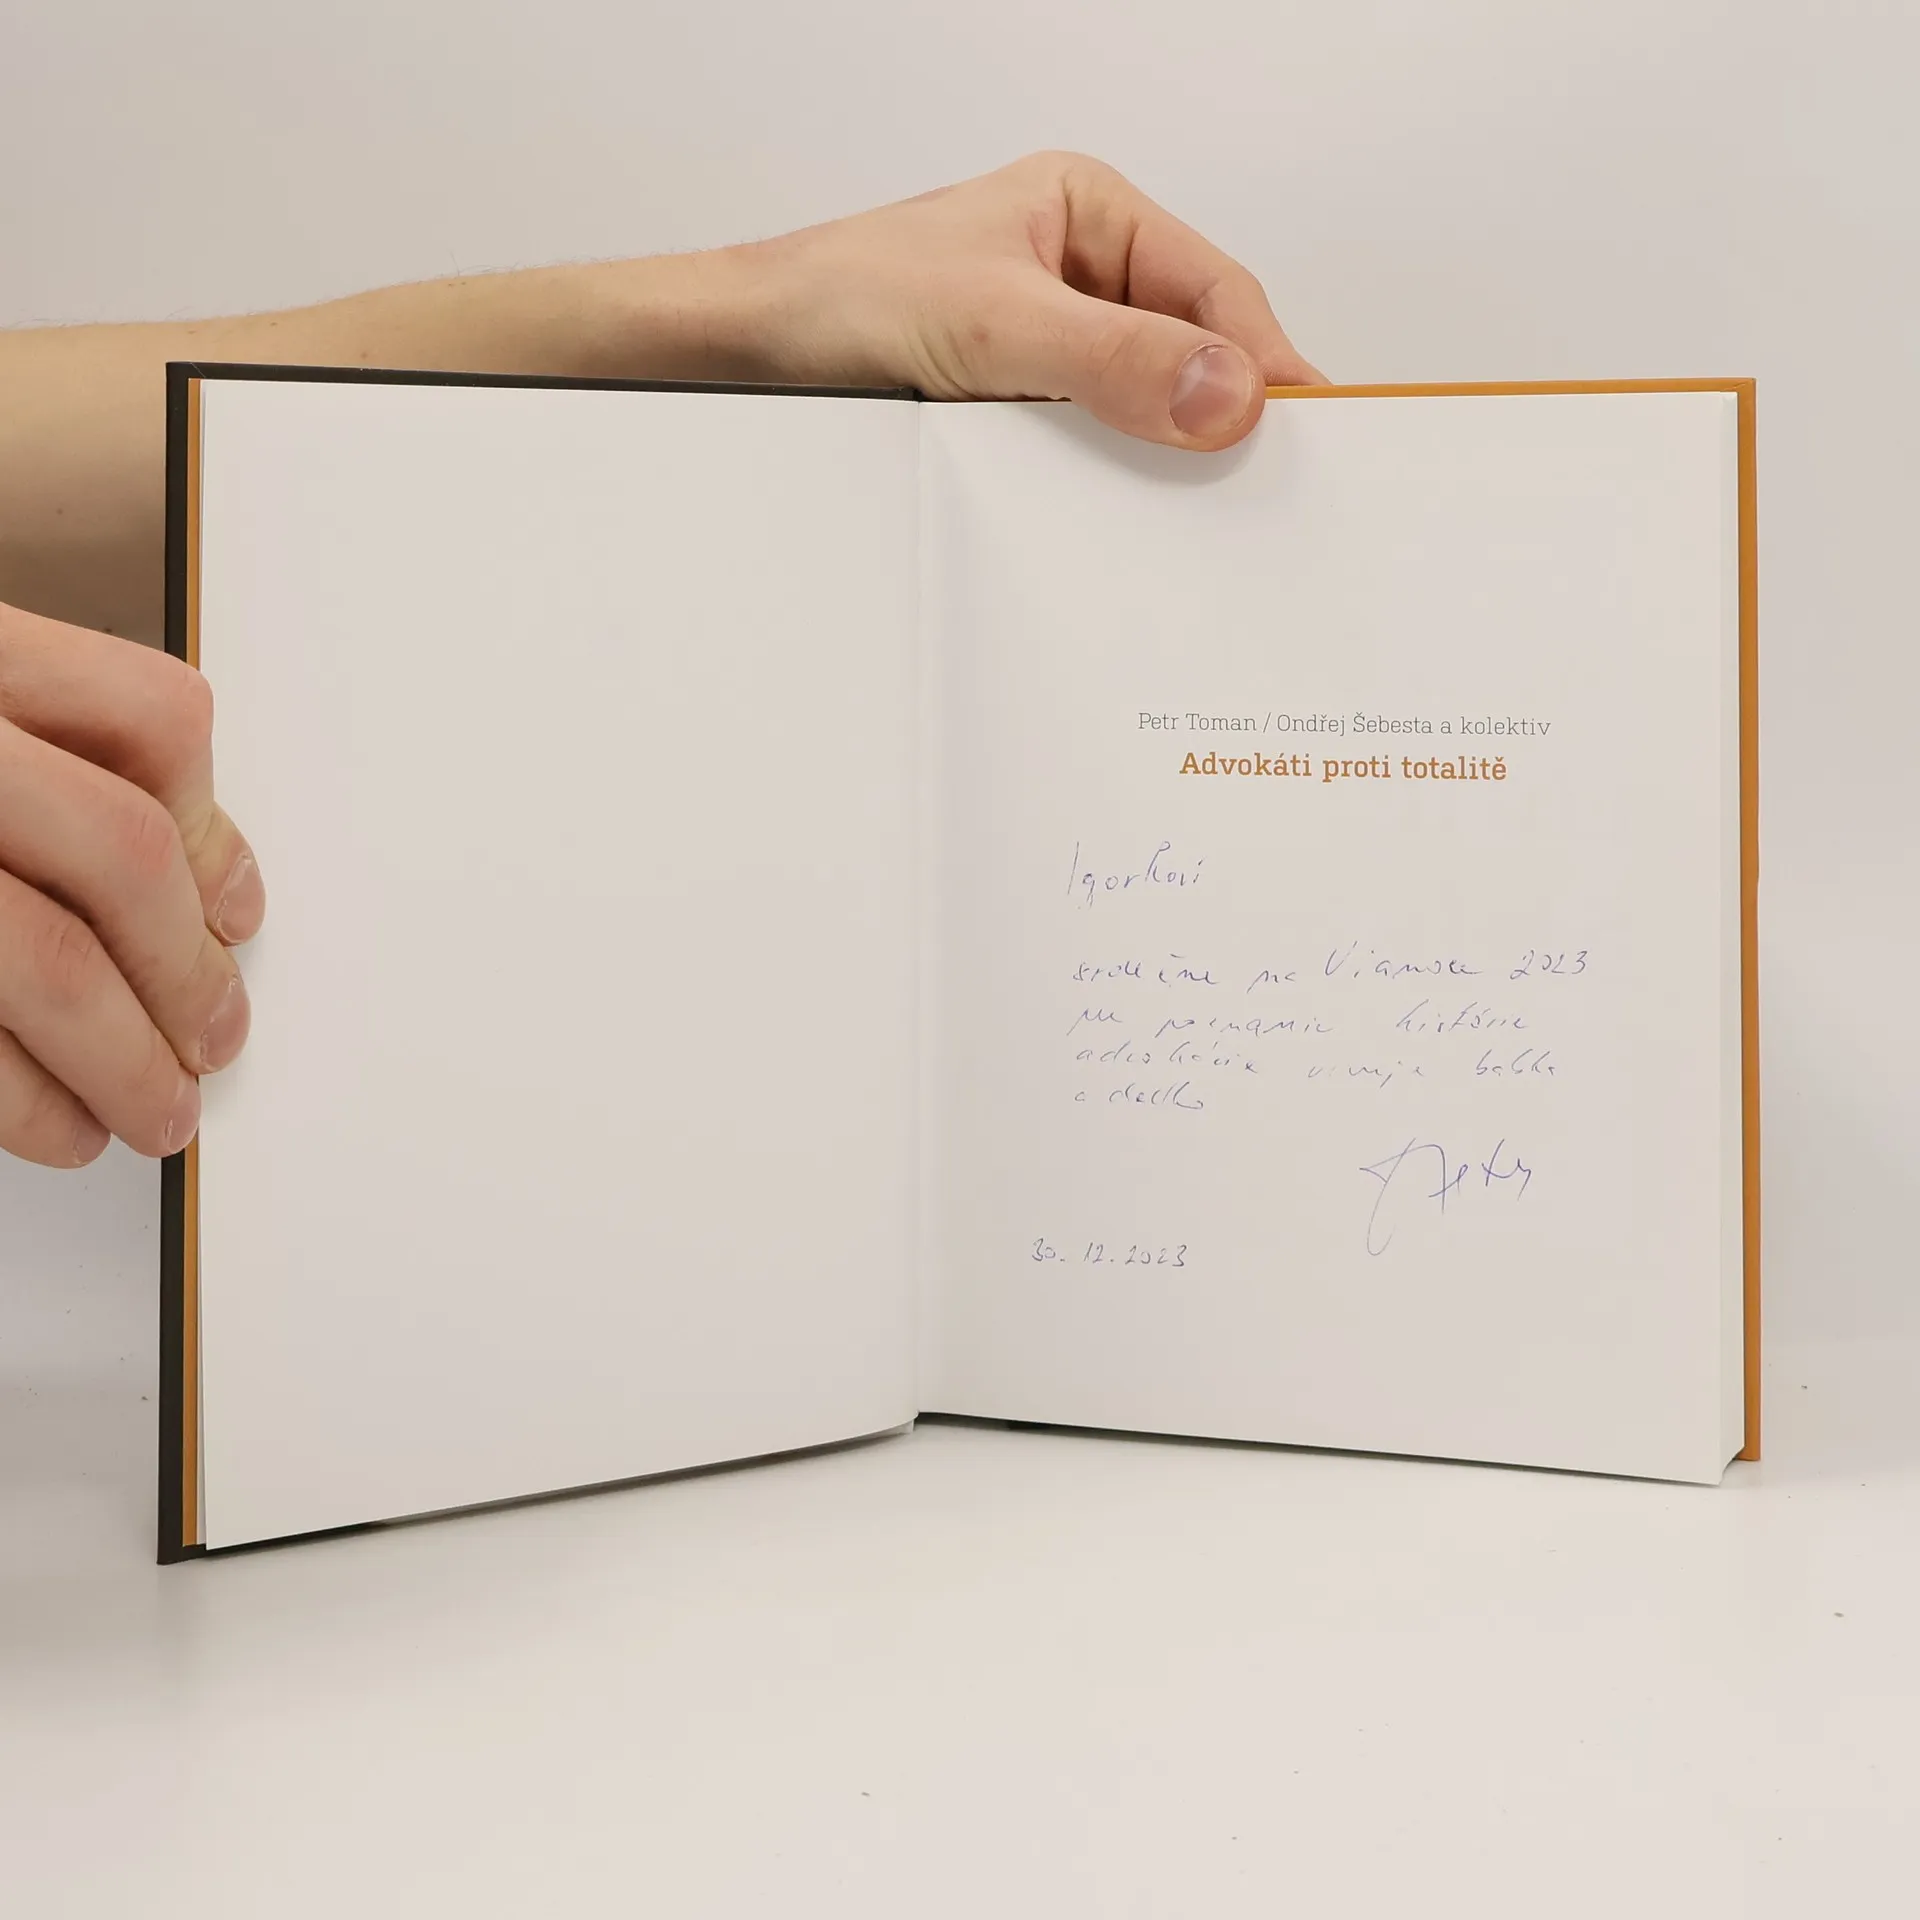 Petr Toman / Ondřej Šebesta a kolektiv
Advokáti proti totalitě
Igorkovi
srdečne na Vianoce 2023
na poznanie histórie
advokácie venuje babka
a dedko
30. 12. 2023